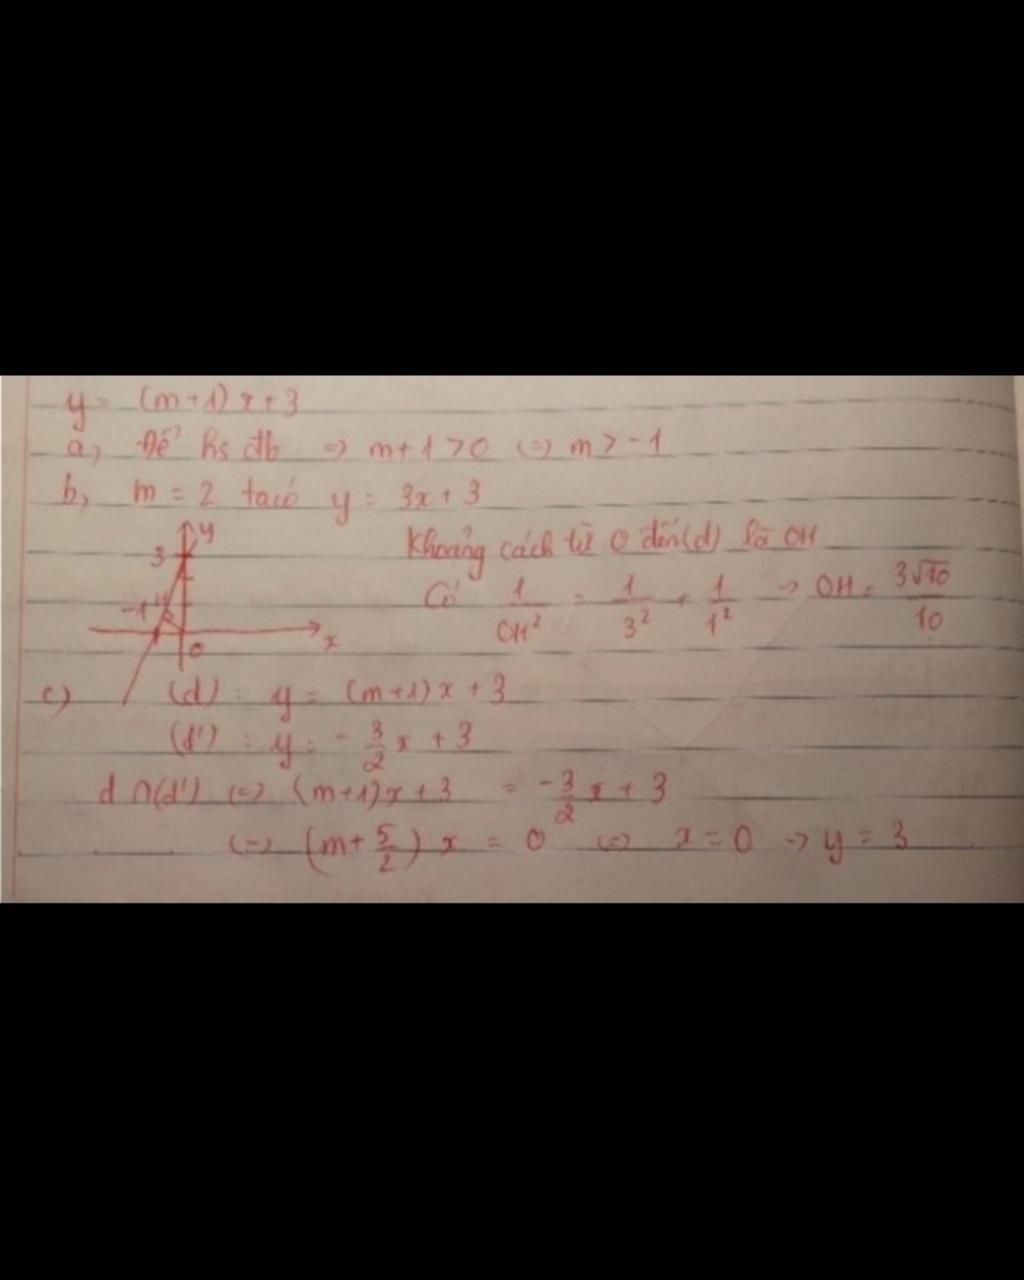 y = (m+1)x+3
a, Để hs đb => m+1>0 <=> m>-1
b, m = 2 ta có y = 3x+3
y
3
-1
O
x
Khoảng cách từ O đến (d) là OH
Có 1/OH² = 1/3² + 1/1² → OH = 3√10/10
c) (d) : y = (m+1)x+3
(d') : y = -3/2 x + 3
d ∩ (d') <=> (m+1)x+3 = -3/2 x + 3
<=> (m+5/2) x = 0 <=> x=0 → y = 3